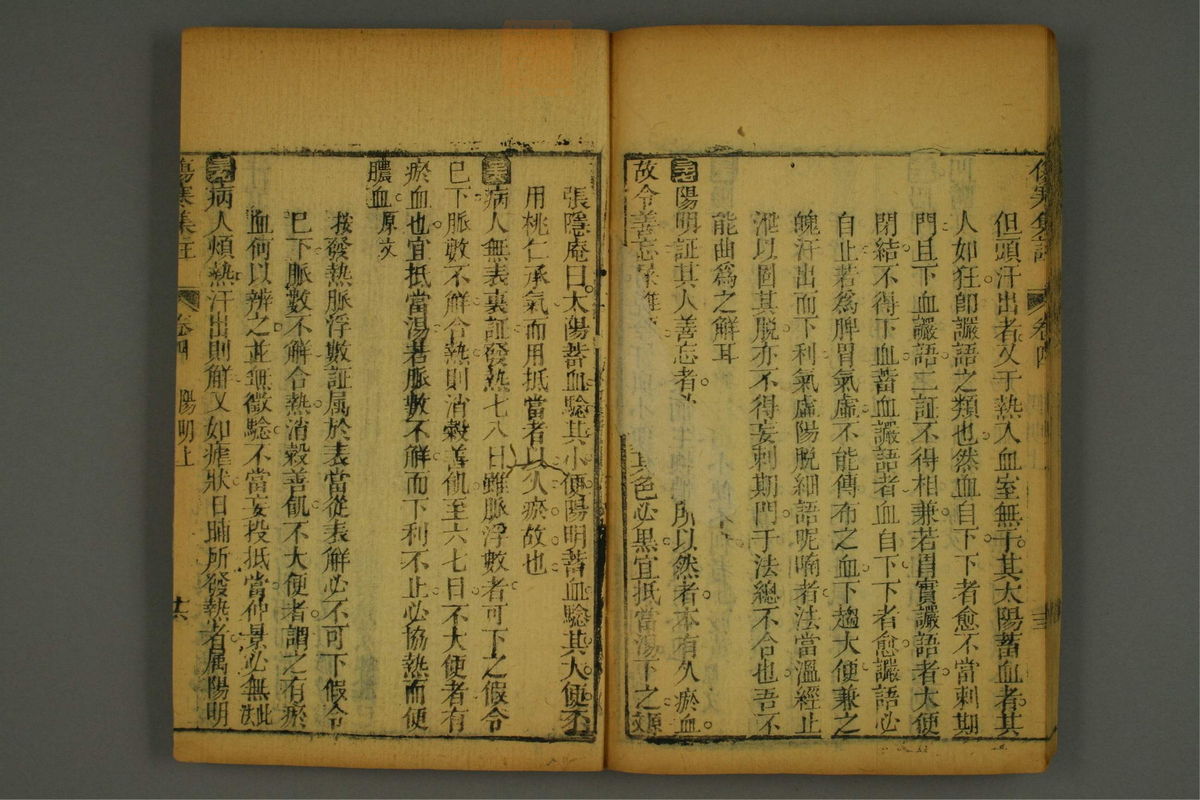 傷寒集註
卷四
但頭汗出者又于熱入血室無干其太陽蓄血者其
人如狂卽譫語之類也然血自下下者愈不當刺期
門且下血譫語二証不得相兼若自實譫語者大便
閉結不得下血蓄血譫語者血自下下者愈譫語必
自止若為脾胃氣虛不能傳布之血下趨大便兼之
魄汗出而下利氣虛陽脫細語呢喃者法當溫經止
泄以固其脫亦不得妄刺期門于法總不合也吾不
能曲爲之解耳
陽明証其人善忘者 所以然者本有久瘀血
故令善忘屎 其色必黑宜抵當湯下之
張隱庵曰太陽蓄血驗其小便陽明蓄血驗其大便不
用桃仁承氣而用抵當者以久瘀故也
病人無表裏証發熱七八日雖脈浮數者可下之假令
已下脈數不解合熱則消穀善飢至六七日不大便者有
瘀血也宜抵當湯若脈數不解而下利不止必協熱而便
膿血 原文
按發熱脈浮數証属於表當從表解必不可下假令
已下脈數不解合熱消穀善飢不大便者謂之有瘀
血何以辨之並無徵驗不當妄投抵當仲景必無此法
病人煩熱汗出則解又如瘧狀日晡所發熱者属陽明
傷寒集註
卷四
陽明上